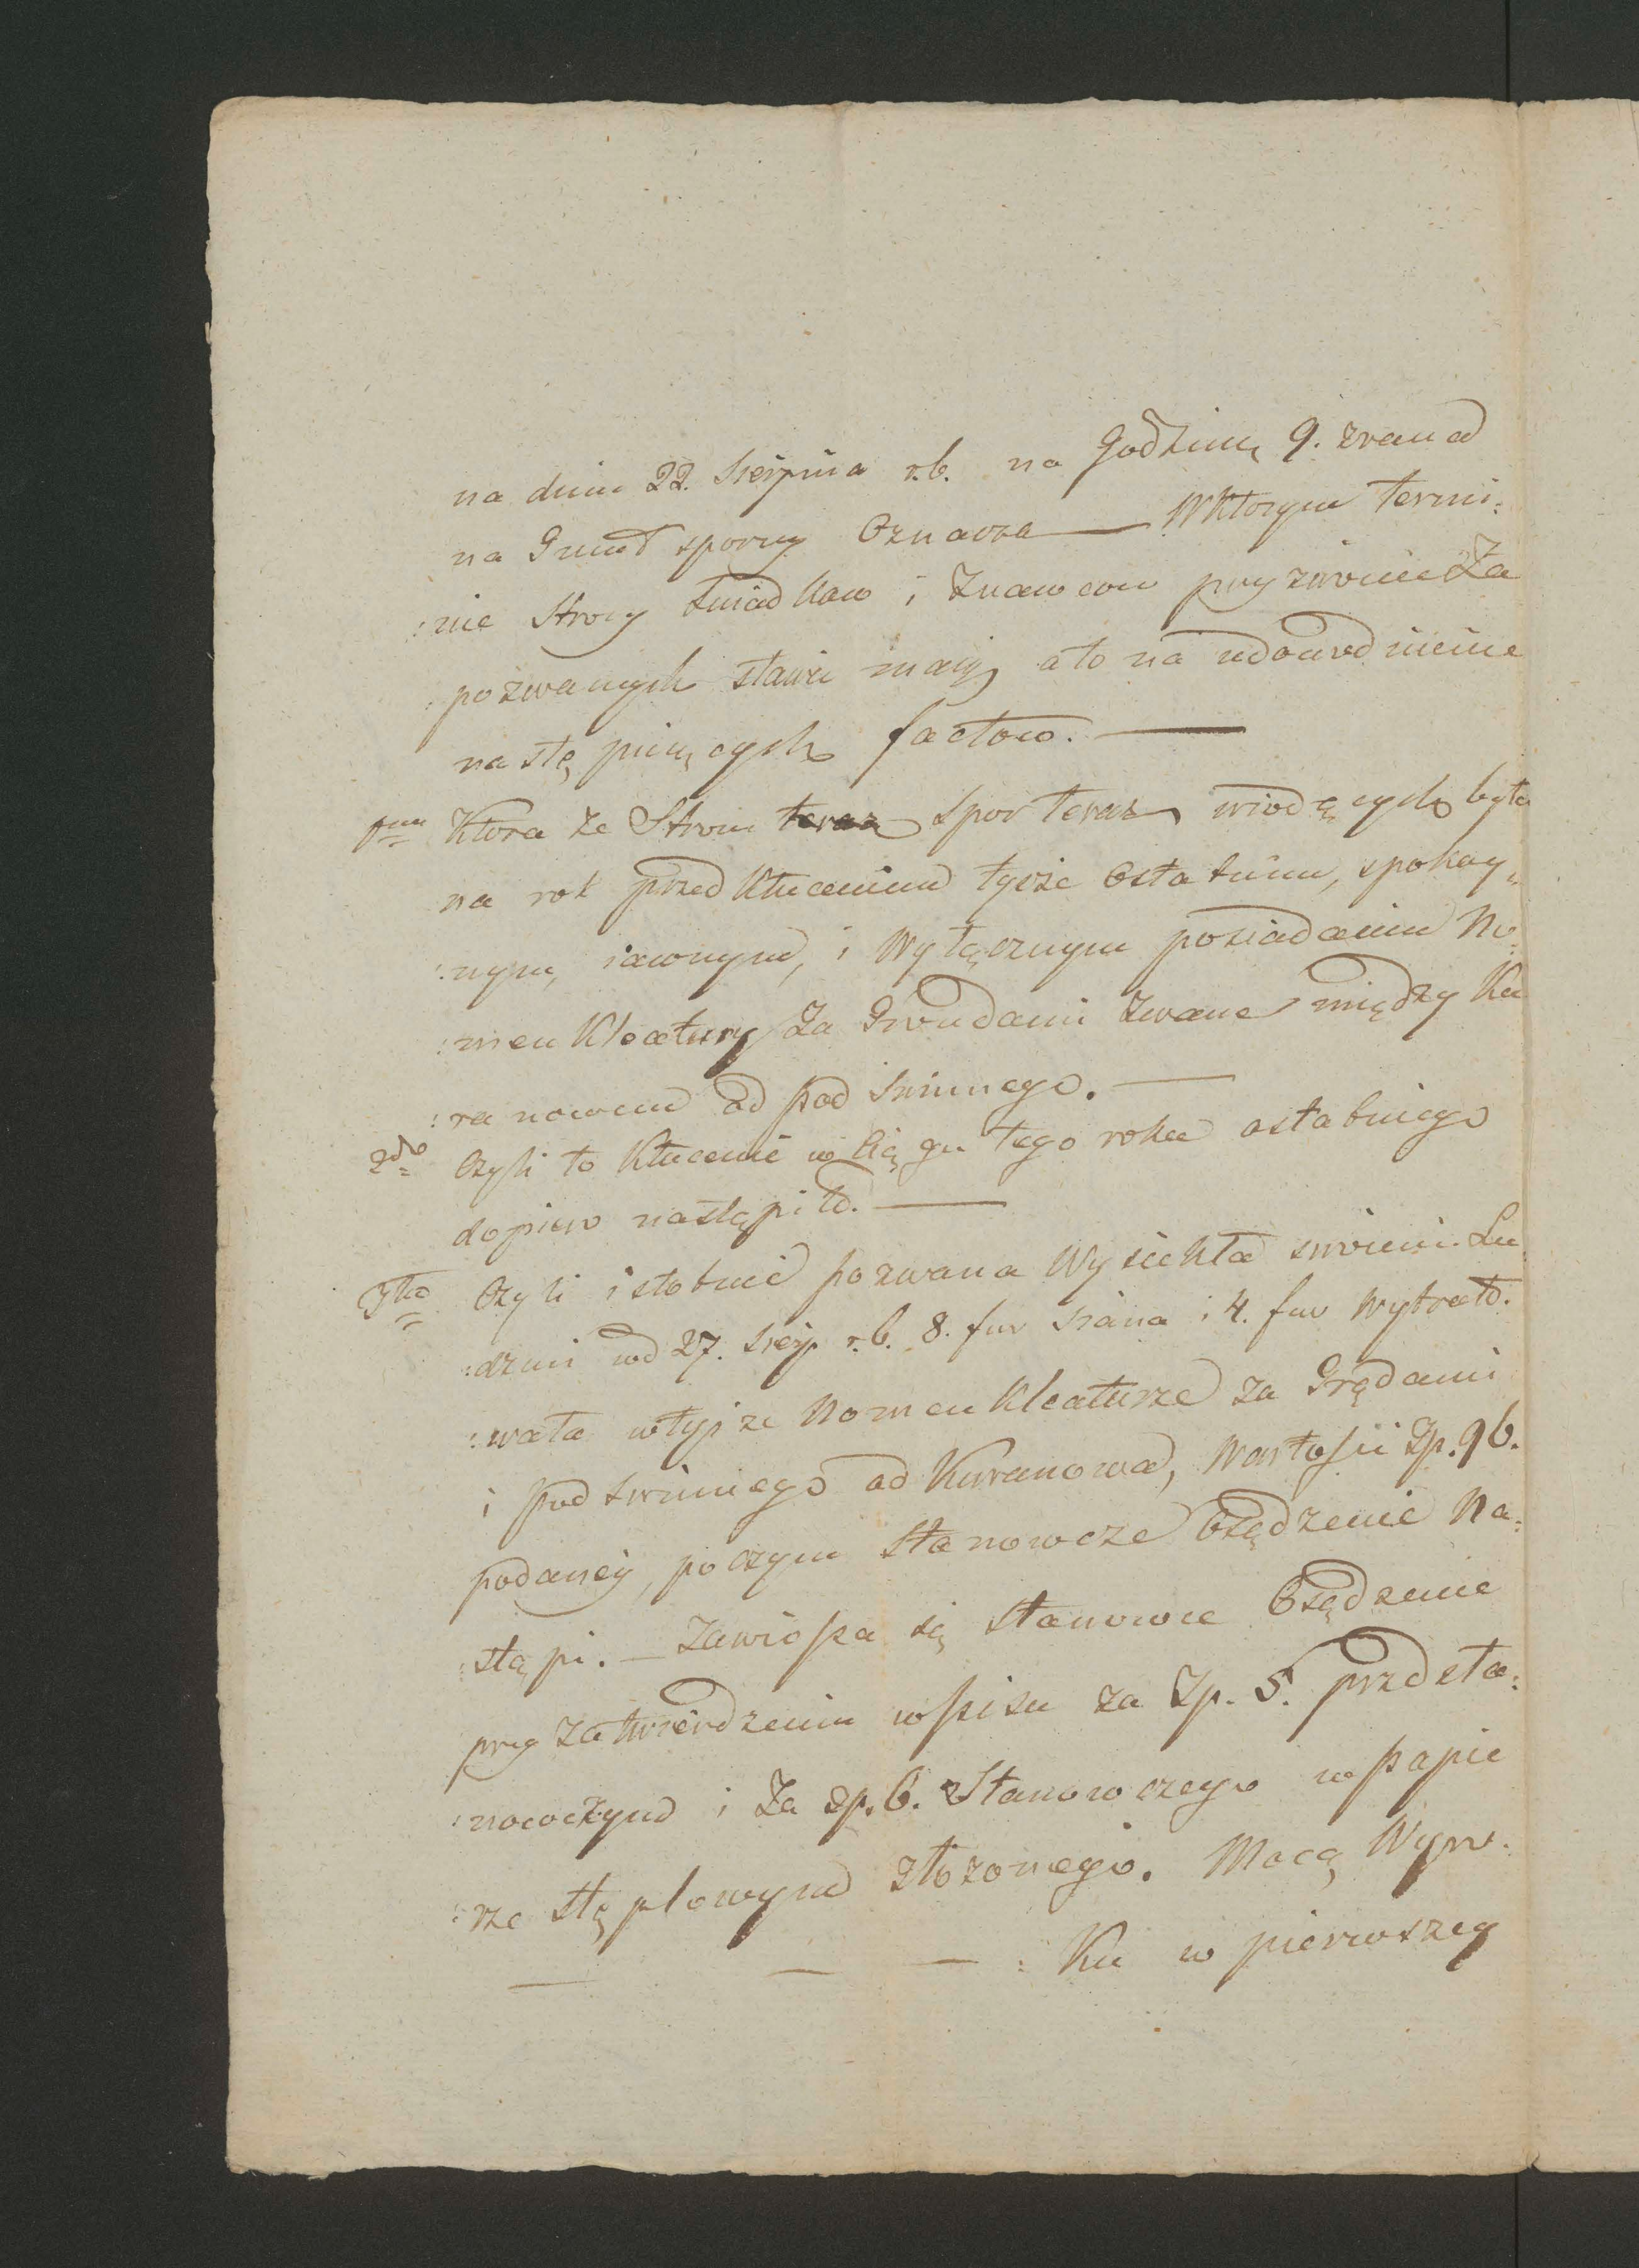 na dniu 22. Sierpnia r.b. na Godzinę 9. zrana
na Grunt sporny Oznacza — W Ktorym termi:
:nie Strony Swiadkow i Znawcow przyzwoicie Za
:pozwanych stawić maią, a to na udowodnienie
następuiących factow. —
1mo Ktora ze Stron spor teraz wiodących była
na rok przed Kłuceniem tychże Ostatnim, spokoy„
:nym, iawnym, i Wyłącznym posiadaniu No:
:menKleatury Za Grondami Zwane między Ku
:ranowem od pod Swinnego. —
2do Czyli to Kłucenie w Ciągu tego roku ostatniego
dopiero nastąpiło. —
3tio Czyli istotnie pozwana Wysiekła swiemi Lu
:dzmi od 27. Sierp r.b. 8. fur Siana i 4. fur Wytrato.
:wała w tyjze NomenKleaturze za Grędami
i Pod swinniego od Kuranowa, Wartości Zp. 96.
podaney, po czym Stanowcze Osądzenie Na:
:stąpi. — Zawiesza się Stanowce Osądzenie
przy Zatwierdzeniu wpisu za Zp. 5. przdsta:
:nowczym i Za Zp. 6. Stanowczego w papie
:rze stęplowym złozonego. Mocą Wyro:
— — — :Ku w pierwszey